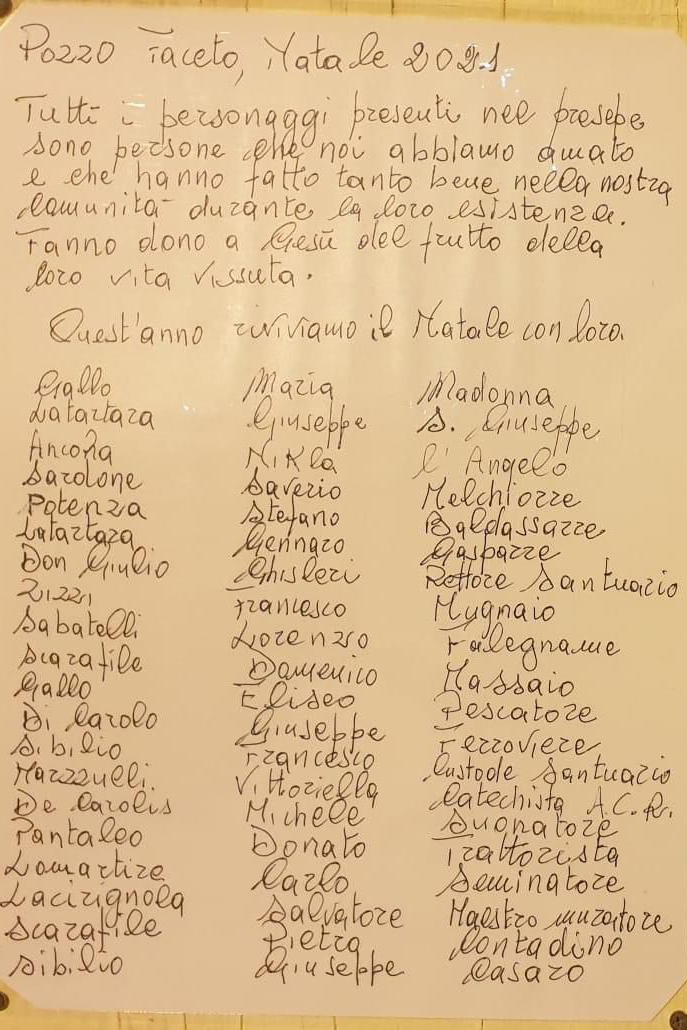 Pozzo Faceto, Natale 2021
Tutti i personaggi presenti nel presepe
sono persone che noi abbiamo amato
e che hanno fatto tanto bene nella nostra
comunità durante la loro esistenza.
Fanno dono a Gesù del frutto della
loro vita vissuta.
Quest'anno riviviamo il Natale con loro.
Gallo Maria Madonna
Latartara Giuseppe S. Giuseppe
Ancona Nikla l'Angelo
Sardone Saverio Melchiorre
Potenza Stefano Baldassarre
Latartara Gennaro Gasparre
Don Giulio Ghisleri Rettore Santuario
Zizzi Francesco Mugnaio
Sabatelli Lorenzo Falegname
Scarafile Domenico Massaio
Gallo Eliseo Pescatore
Di Carolo Giuseppe Ferroviere
Sibilio Francesco Custode Santuario
Mazzuelli Vittoriella Catechista A.C.R.
De Carolis Michele Suonatore
Pantaleo Donato Trattorista
Lomartire Carlo Seminatore
Lacirignola Salvatore Maestro muratore
Scarafile Pietra Contadino
Sibilio Giuseppe Casaro